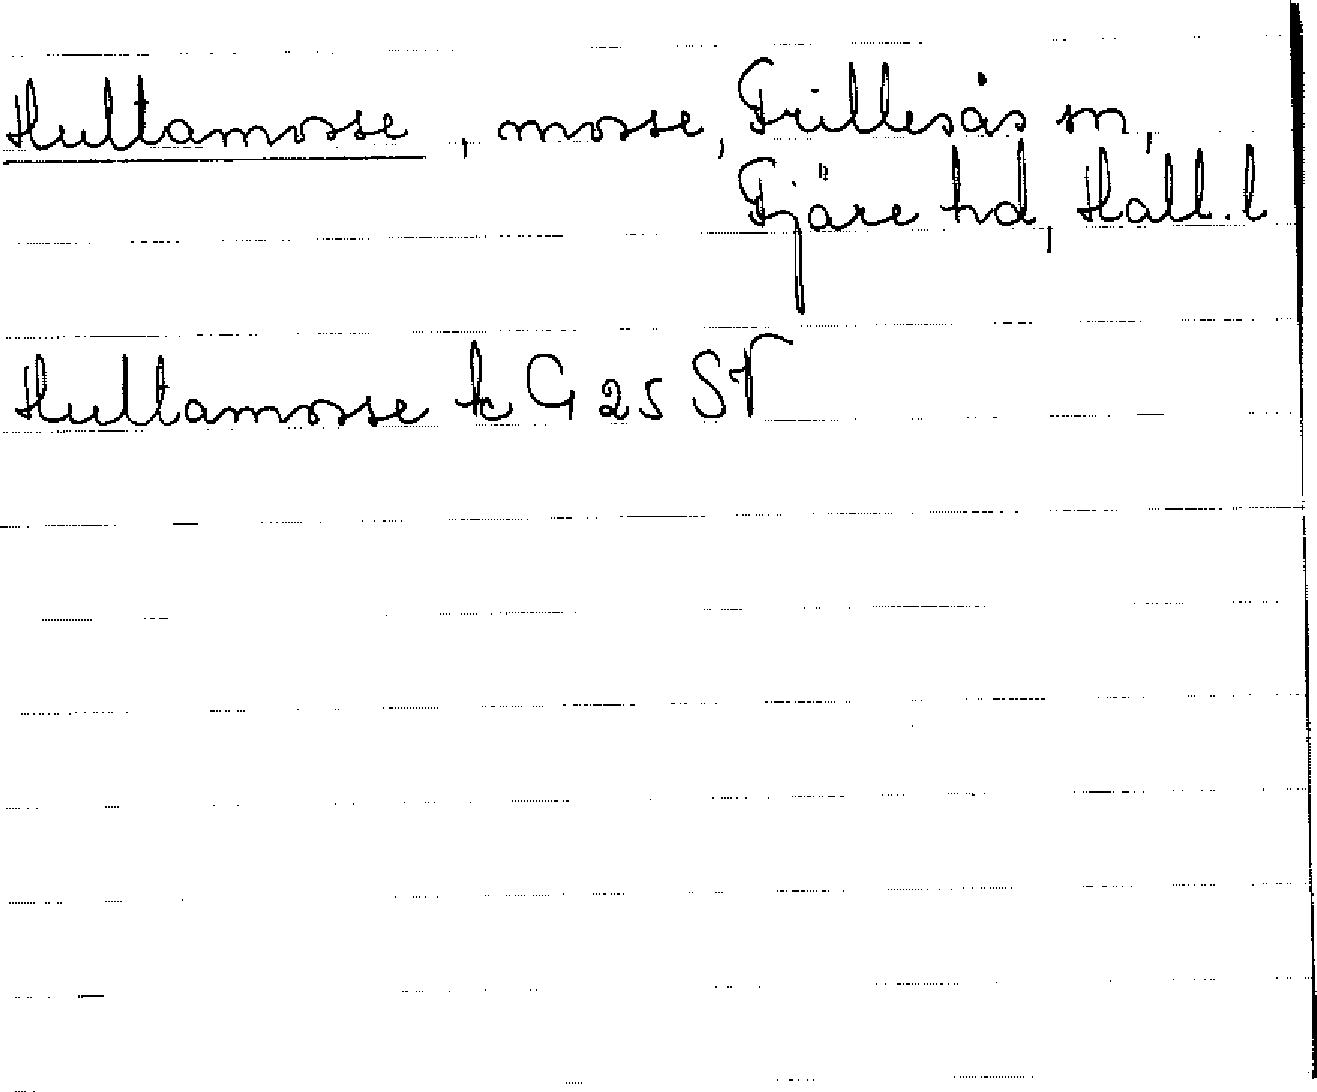 Hultamosse, mosse, Frillesås sn,
Fjäre hd, Hall. l
Hultamosse k G 25 SV